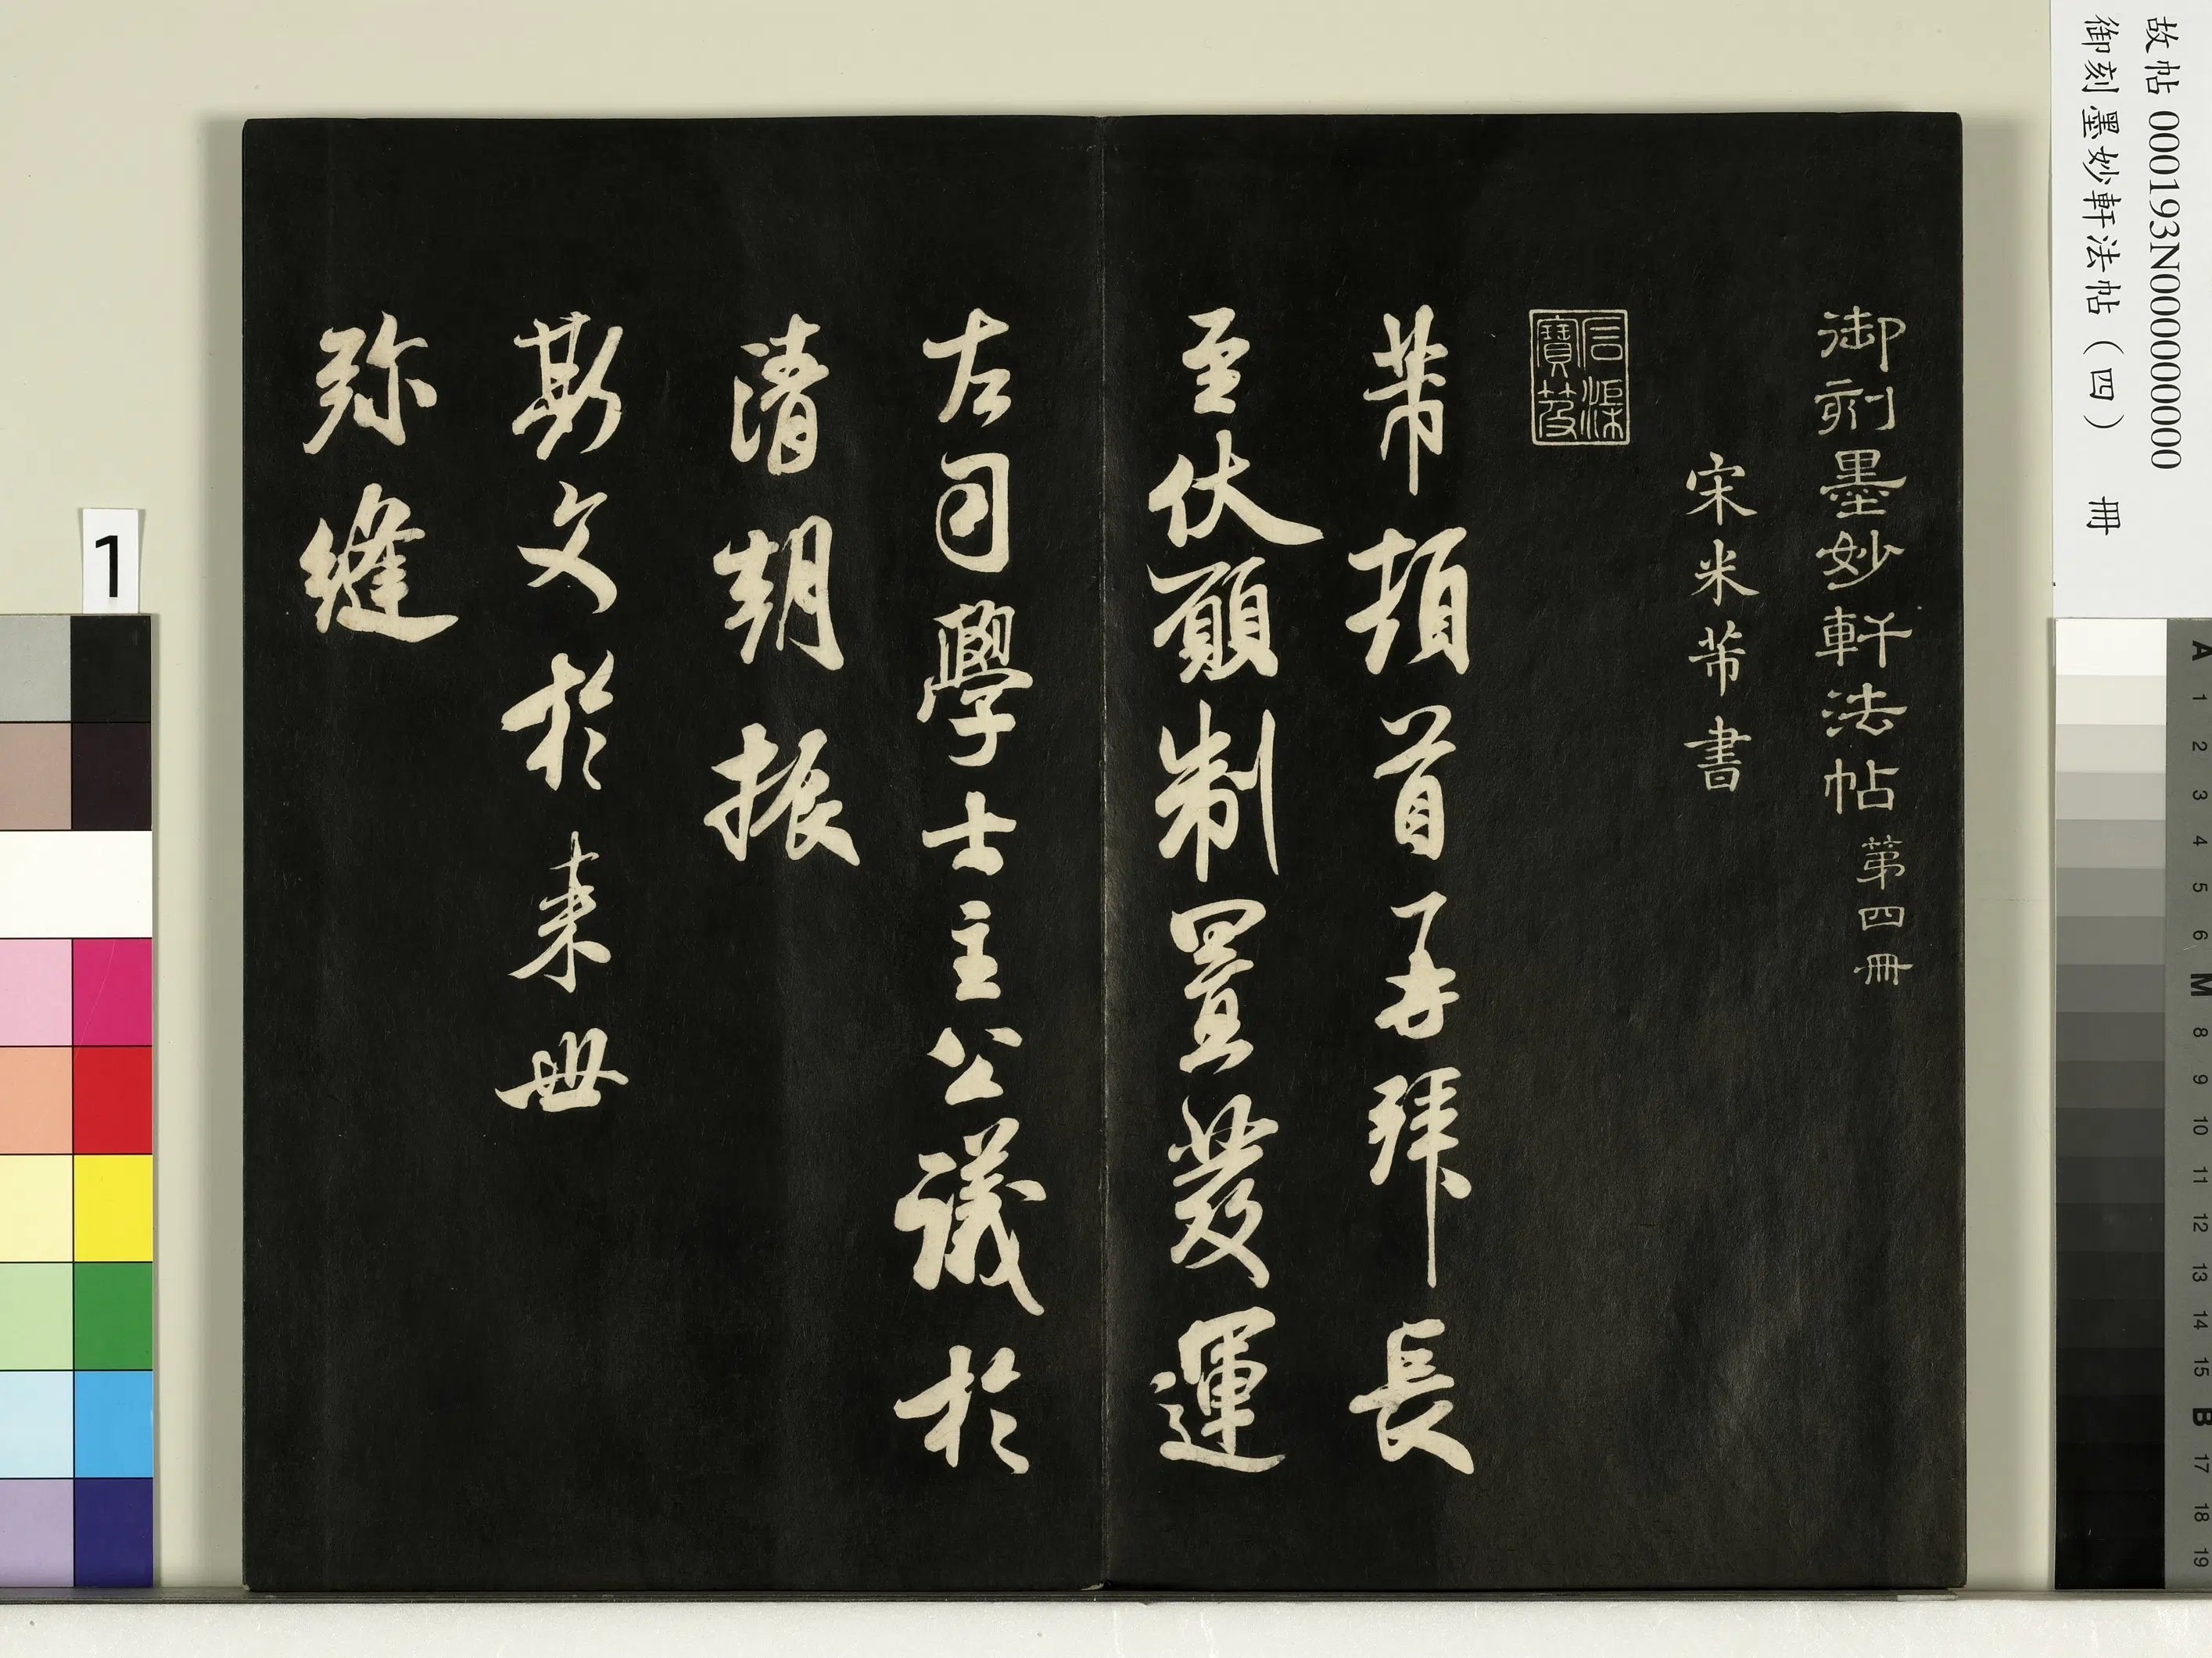 故帖 000193N000000000
御刻墨妙軒法帖（四） 冊
御刻墨妙軒法帖 第四冊
宋米芾書
石渠寶笈
芾頓首再拜長
至伏願制置發運
左司學士主公議於
清朝振
斯文於来世
弥縫
1
A 1 2 3 4 5 6 M 8 9 10 11 12 13 14 15 B 17 18 19